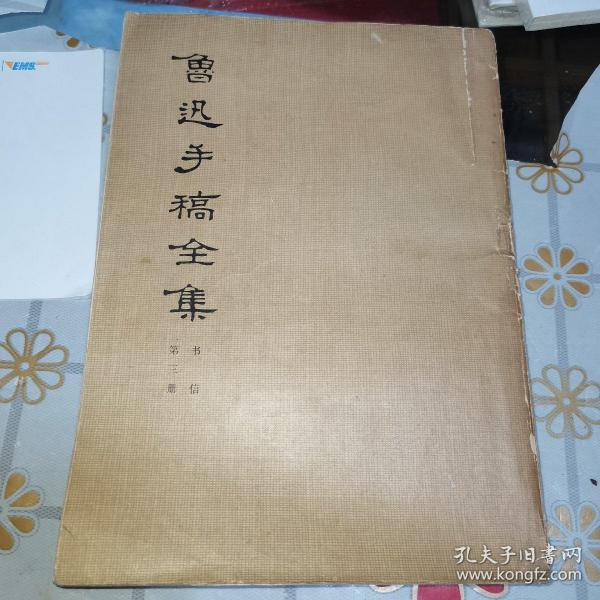 魯迅手稿全集
书信
第三册
EMS
孔夫子旧书网
www.kongfz.com